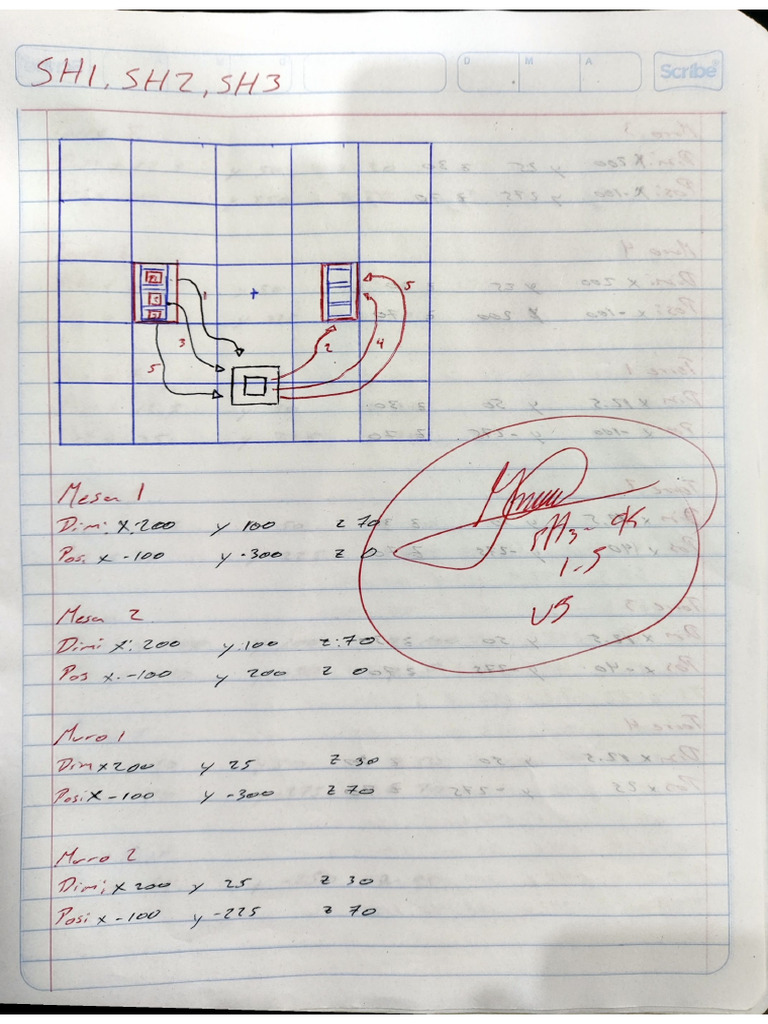 SH1, SH2, SH3
D M A
Scribe
1
3
5
2
4
5
Mesa 1
Dim: x:200 y 100 z 70
Pos: x -100 y -300 z 0
SH3 - OK
1-5
Mesa 2
Dim: x: 200 y:100 z:70
Pos x: -100 y 200 z 0
Muro 1
Dim x 200 y 25 z 30
Posi x -100 y -300 z 70
Muro 2
Dim: x 200 y 25 z 30
Posi x -100 y -225 z 70